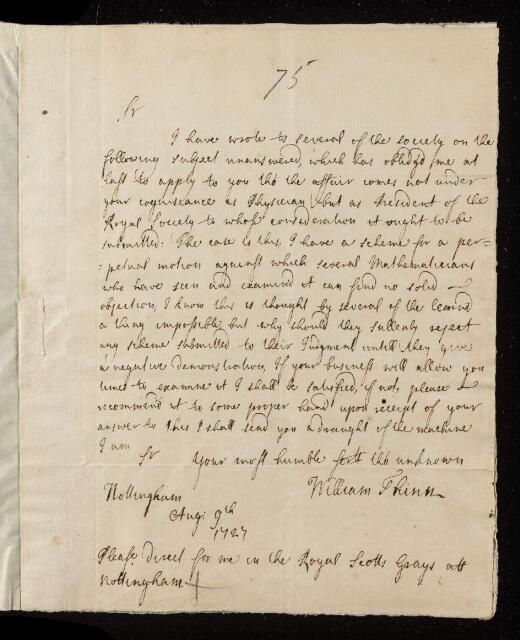 75
Sr
I have wrote to several of the society on the
following subject unanswered, which has oblidg'd me at
last to apply to you tho the affair comes not under
your cognisance as Physician, but as President of the
Royal Society to whose consideration it ought to be
submitted: The case is this, I have a scheme for a per=
=petual motion against which several Mathematicians
who have seen and examind it can find no solid
objection, I know this is thought by several of the learnd
a thing impossible, but why should they sullenly reject
any scheme submitted to their Judgment untill they give
a negative demonstration, If your business will allow you
time to examine it I shall be satisfied, if not, please
recommend it to some proper hand upon receipt of your
answer to this I shall send you a draught of the machine
I am
Sr Your most humble servt tho unknown
William
Nottingham
Aug: 9th
1727
Please direct for me in the Royal Scotts Grays att
Nottingham